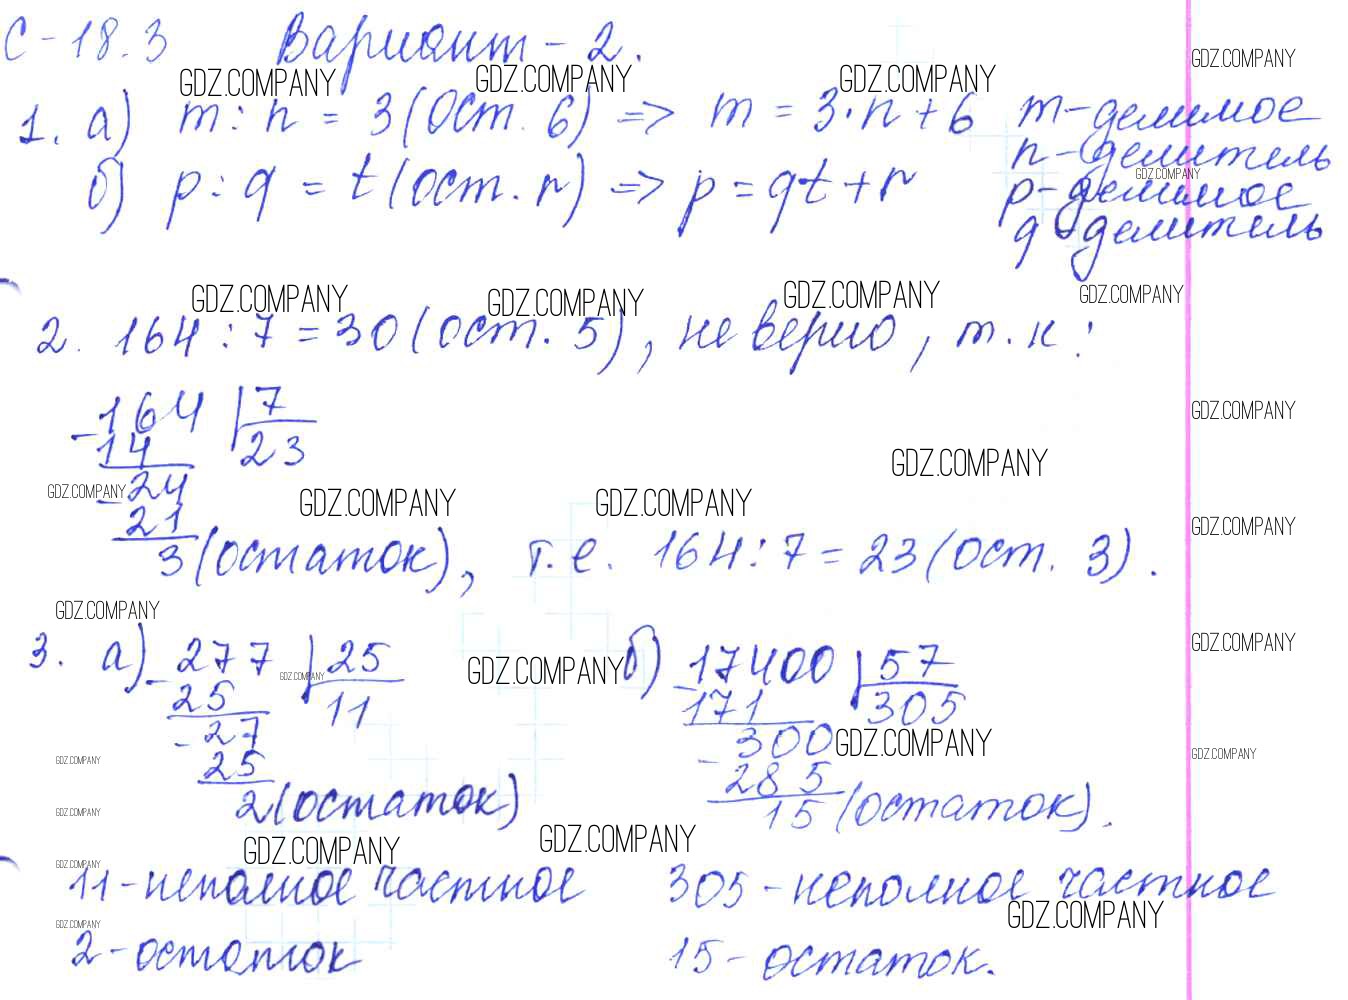 С-18.3 Вариант-2.
GDZ.COMPANY GDZ.COMPANY GDZ.COMPANY GDZ.COMPANY
1. а) m : n = 3 (Ост. 6) => m = 3·n+6 m-делимое
n-делитель
б) p : q = t (ост. r) => p = qt+r p-делимое
GDZ.COMPANY
q-делитель
GDZ.COMPANY GDZ.COMPANY GDZ.COMPANY GDZ.COMPANY
2. 164 : 7 = 30 (ост. 5), не верно, т.к:
-164 | 7
14 23
GDZ.COMPANY
GDZ.COMPANY
-24
GDZ.COMPANY GDZ.COMPANY GDZ.COMPANY
21
GDZ.COMPANY
3 (остаток), т.е. 164 : 7 = 23 (ост. 3).
GDZ.COMPANY
GDZ.COMPANY
3. а) -277 | 25 б) -17400 | 57
GDZ.COMPANY GDZ.COMPANY
25 11 171 305
-27 -300
GDZ.COMPANY GDZ.COMPANY GDZ.COMPANY
25 285
2 (остаток) 15 (остаток).
GDZ.COMPANY
GDZ.COMPANY GDZ.COMPANY
GDZ.COMPANY
11-неполное частное 305-неполное частное
GDZ.COMPANY GDZ.COMPANY
2-остаток 15-остаток.